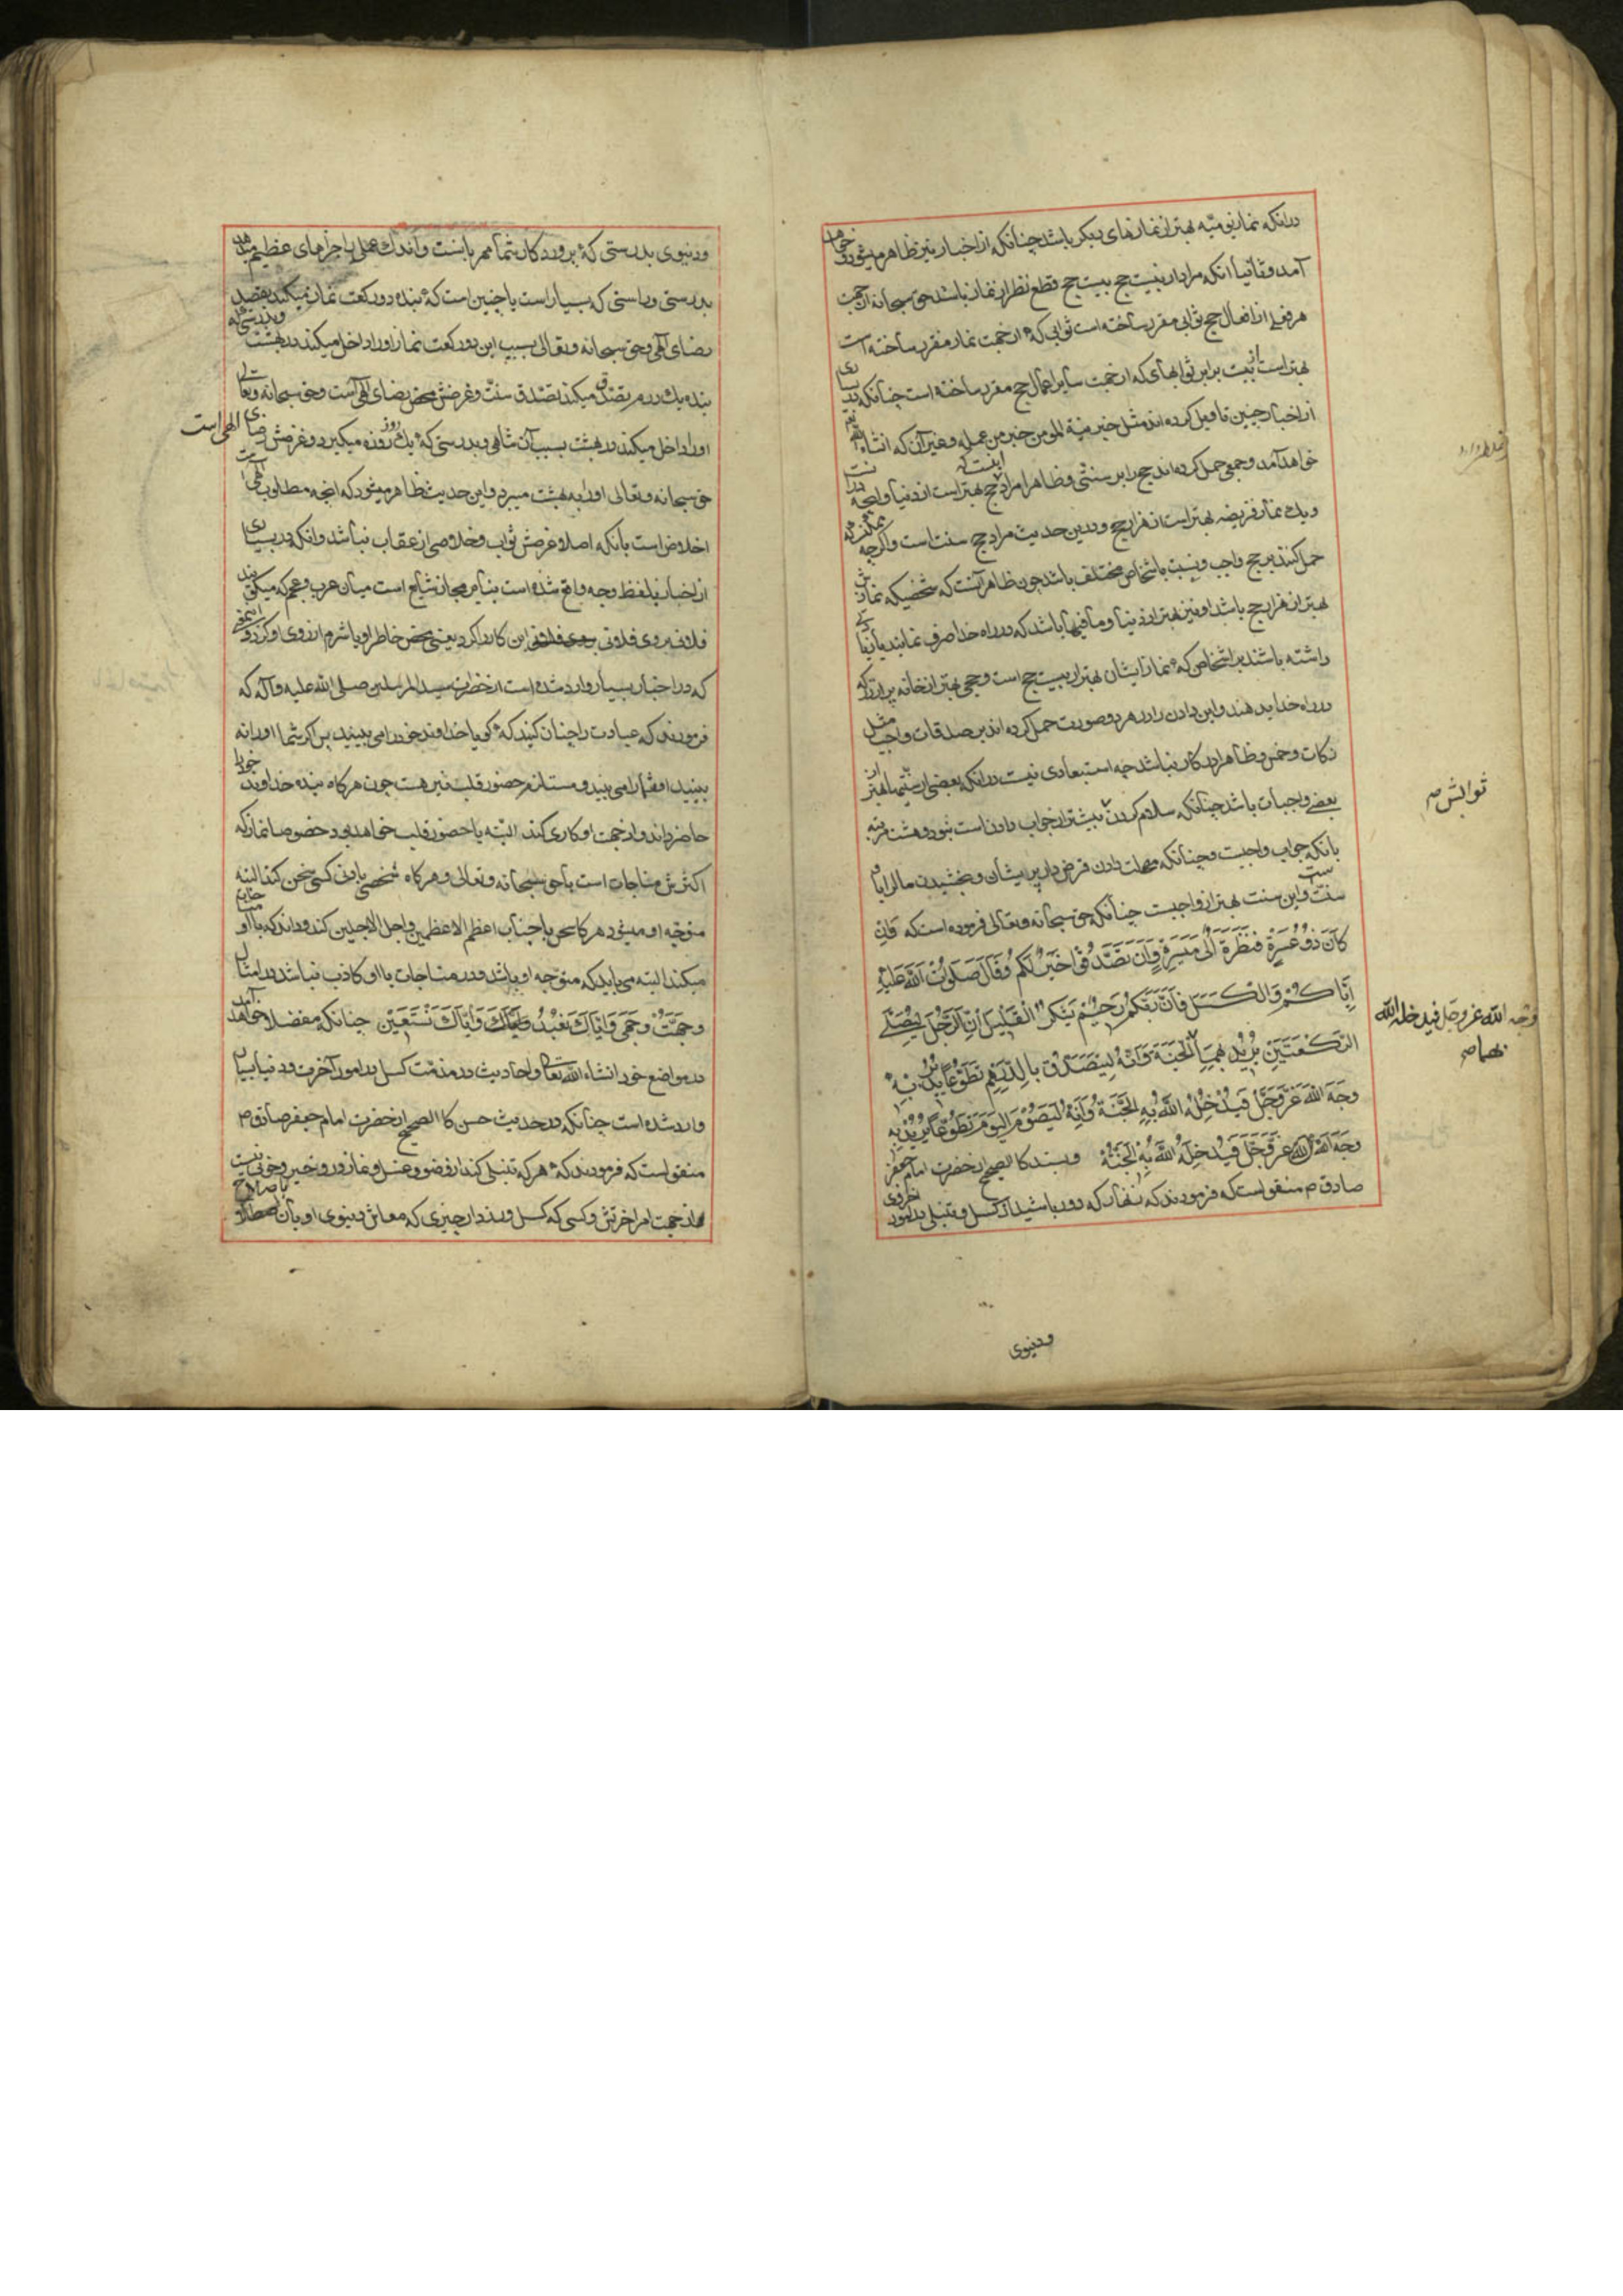 درانکه نماز یومیّه بهتر از نمازهای دیکر باشد چنانکه از اخبار نیز ظاهر میشود و خواهد
آمد و ثانیا انکه مراد از بیست حج بیست حج قطع نظر از نماز باشد حق سبحانه از جهت
هر فعلی از افعال حج ثوابی مقرر ساخته است ثوابی که از جهت نماز مقرر ساخته است
بهتر است از بیست برابر ثوابهای که از جهت سایر اعمال حج مقرر ساخته است چنانکه در بسیاری
از اخبار چنین تاویل کرده اند مثل خبر نیة المومن خیر من عمله و غیر آن که انشاء الله
خواهد آمد و جمعی حمل کرده اند حج را بر سنتی و ظاهرا مراد اینست که حج بهتر است از دنیا و انچه در
و یک نماز فریضه بهتر است از هزار حج و درین حدیث مراد حج سنت است و اگرچه ممکنست که
حمل کنند بر حج واجب و نسبت باشخاص مختلف باشد چون ظاهر آنست که شخصیکه نمازش
بهتر از هزار حج باشد او نیز بهتر از دنیا و مافیها باشد که در راه خدا صرف نمایند یا
داشته باشند بر اشخاص که نماز ایشان بهتر از بیست حج است و حجی بهتر از خانه پر از زر که
در راه خدا بدهند و این دادن را در هر دو صورت حمل کرده اند بر صدقات واجب مثل
زکات و خمس و ظاهرا در کار نباشد چه استبعادی نیست درانکه بعضی از سنتیها بهتر از
بعضی واجبات باشد چنانکه سلام کردن بیشتر از جواب دادن است بنود و هشت مرتبه
بانکه جواب واجبست و چنانکه مهلت دادن قرض دار پریشان و بخشیدن مال را باو
سنت است و این سنت بهتر از واجبست چنانکه حق سبحانه و تعالی فرموده است که وَاِن
کَانَ ذُو عُسْرَةٍ فَنَظِرَةٌ اِلَی مَیْسَرَةٍ وَاَن تَصَدَّقُوا خَیْرٌ لَکُم وَقَالَ صَلَوَاتُ اللّهِ عَلَیْهِ
اِیَّاکُمْ وَالْکَسَلَ فَاِنَّ رَبَّکُمْ رَحِیْمٌ یَشْکُرُ الْقَلِیْلَ اِنَّ الرَّجُلَ لَیُصَلِّی
الرَّکْعَتَیْنِ یُرِیْدُ بِهِمَا الْجَنَّةَ وَاِنَّهُ لَیَتَصَدَّقُ بِالدِّرْهَمِ تَطَوُّعًا یُرِیْدُ بِهِ
وَجْهَ اللّهِ عَزَّ وَجَلَّ فَیُدْخِلُهُ اللّهُ بِهِ الْجَنَّةَ وَاِنَّهُ لَیَصُوْمُ الْیَوْمَ تَطَوُّعًا یُرِیْدُ بِهِ
وَجْهَ اللّهِ عَزَّ وَجَلَّ فَیُدْخِلُهُ اللّهُ بِهِ الْجَنَّةَ و بسند کالصحیح از حضرت امام جعفر
صادق م منقولست که فرمودند که زنهار که دور باشید از کسل و تنبلی در امور اخروی
ثوابش م
وجه الله عز وجل فیدخله الله
بهما صح
ودنیوی
ودنیوی بدرستی که پروردکار شما مهربانست و اندک عمل را جزاهای عظیم میدهد
بدرستی و راستی که بسیار است یا چنین است که بنده دو رکعت نماز میکند بقصد
رضای الهی و حق سبحانه و تعالی بسبب این دو رکعت نماز او را داخل میکند در بهشت و بدرستی که
بنده یک درهم تصدق میکند تصدق سنت و غرضش محض رضای الهی است و حق سبحانه و تعالی
او را داخل میکند در بهشت بسبب آن و بدرستی که یک روز روزه میکیرد و غرضش رضای الهی است
حق سبحانه و تعالی او را به بهشت میبرد و این حدیث ظاهر میشود که انچه مطلوب الهی است
اخلاص است بانکه اصلا غرضش ثواب و خلاصی از عقاب نباشد و انکه در بسیاری
از اخبار بلفظ وجه واقع شده است بنابر مجاز شایع است میان عرب و عجم که میکویند
فلانی بروی فلانی این کار را کرد یعنی محض خاطر او یا شرم از روی او کرد و
که در اخبار بسیار وارد شده است از حضرت سید المرسلین صلی الله علیه و آله که
فرمودند که عبادت را چنان کنید که کویا خداوند خود را می بینید پس اکر شما او را نه
بینید او شما را می بیند و مستلزم حضور قلب نیز هست چون هرکاه بنده خداوند خود را
حاضر داند و از جهت او کاری کند البته با حضور قلب خواهد بود خصوصا نماز که
اکثرش مناجات است با حق سبحانه و تعالی و هرکاه شخصی با دنی کسی سخن کند البته
متوجه او میشود هرکاه سخن با جناب اعظم الاعظمین و اجل الاجلین کند و داند که با او
میکند البته می باید که متوجه او باشد و در مناجات با او کاذب نباشد در امثال
وَجَّهْتُ وَجْهِیَ وَاِیَّاکَ نَعْبُدُ وَاِیَّاکَ نَسْتَعِیْن چنانکه مفصلا خواهد آمد
در مواضع خود انشاء الله تعالی و احادیث در مذمت کسل در امور آخرت و دنیا بسیار
وارد شده است چنانکه در حدیث حسن کالصحیح از حضرت امام جعفر صادق م
منقولست که فرمودند که هر که تنبلی کند از وضو و غسل و نماز درو خیر و خوبی نیست
از جهت امر آخرتش و کسی که کسل ورزد از چیزی که معاش دنیوی او بآن باصلاح